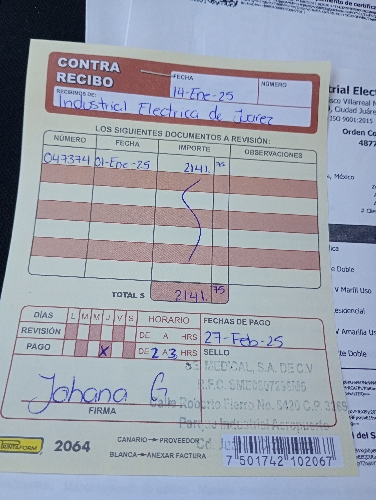 CONTRA
RECIBO
FECHA
14-Ene-25
NÚMERO
RECIBIMOS DE:
Industrial Electrica de Juarez
LOS SIGUIENTES DOCUMENTOS A REVISIÓN:
NÚMERO FECHA IMPORTE OBSERVACIONES
047374 01-Ene-25 2141. 75
TOTAL $ 2141. 75
DÍAS L M M J V S HORARIO FECHAS DE PAGO
REVISIÓN DE A HRS 27-Feb-25
PAGO X DE 2 A 3 HRS SELLO
MEDICAL, S.A. DE C.V
R.F.C.
Calle Roberto Fierro No. 6420 C.P.
Parque Industrial Aeropuerto
Cd.
Johana G
FIRMA
PRINTAFORM 2064
CANARIO PROVEEDOR
BLANCA ANEXAR FACTURA
7 501742 102067
trial Elec
sco Villarreal
, Ciudad Juáre
ISO 9001:2015
Orden Co
4877
, México
te Doble
V Marfil Uso
esidencial
V Amarilla Us
te Doble
del S